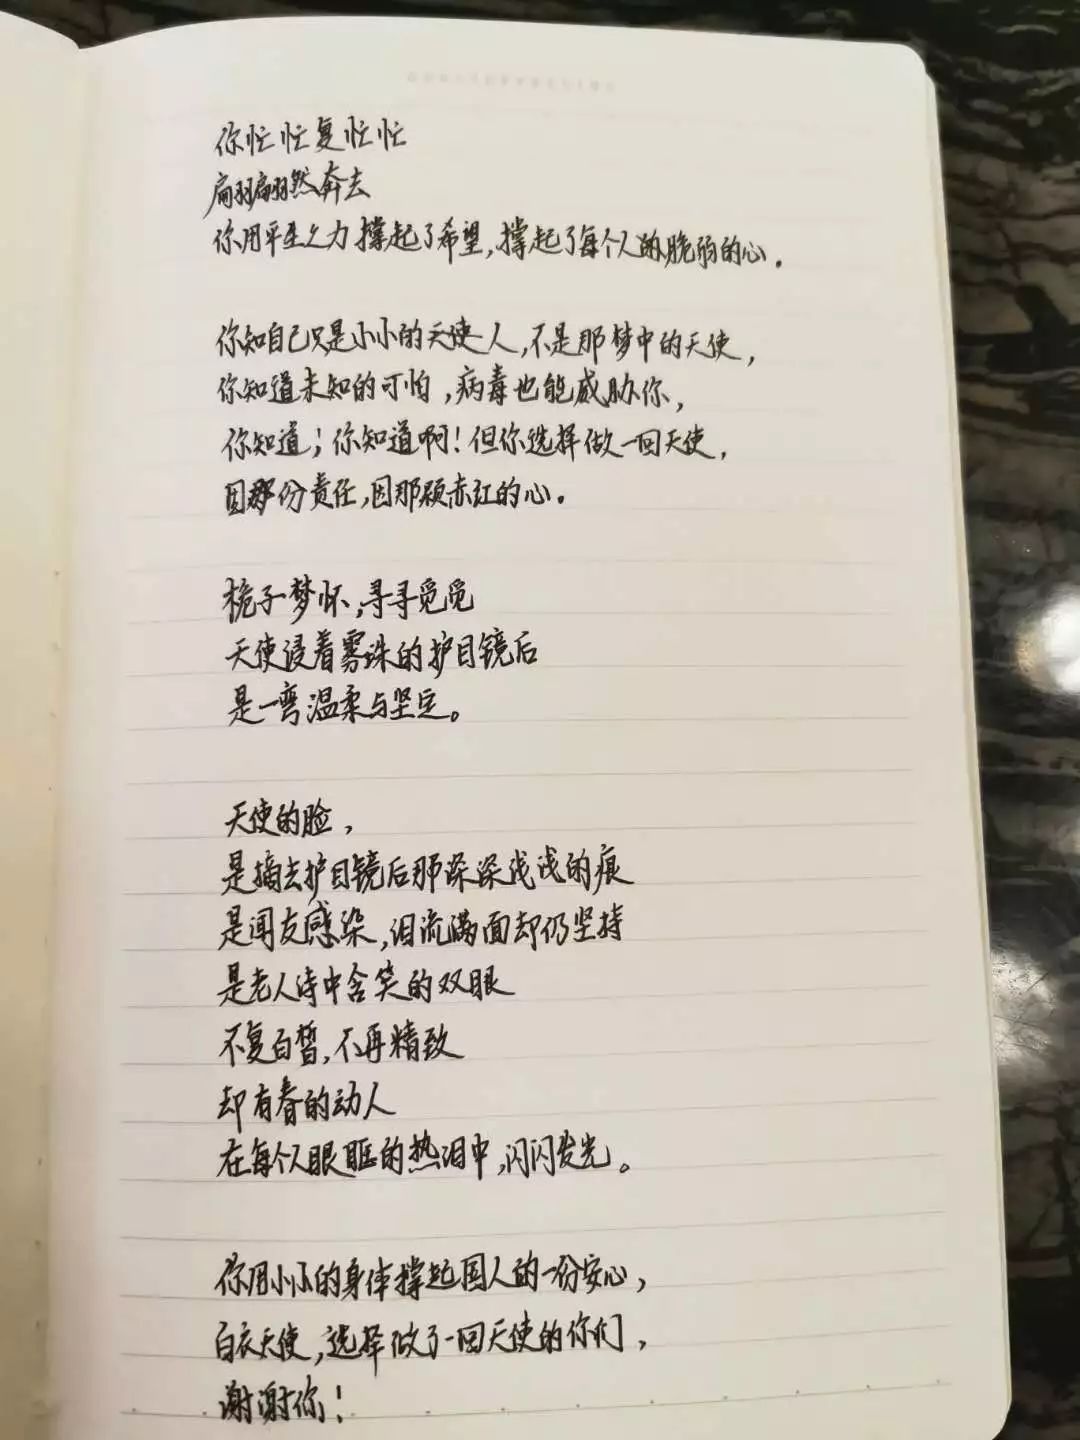 你忙忙复忙忙
翩翩然奔去
你用平生之力撑起了希望，撑起了每个人的脆弱的心。
你知自己只是小小的天使人，不是那梦中的天使，
你知道未知的可怕，病毒也能威胁你，
你知道；你知道啊！但你选择做一回天使，
因那份责任，因那颗赤红的心。
桅子梦怀，寻寻觅觅
天使浸着雾珠的护目镜后
是一弯温柔与坚定。
天使的脸，
是摘去护目镜后那深深浅浅的痕
是闻友感染，泪流满面却仍坚持
是老人诗中含笑的双眼
不复白皙，不再精致
却有春的动人
在每个人眼眶的热泪中，闪闪发光。
你用小小的身体撑起国人的一份安心，
白衣天使，选择做了一回天使的你们，
谢谢你！